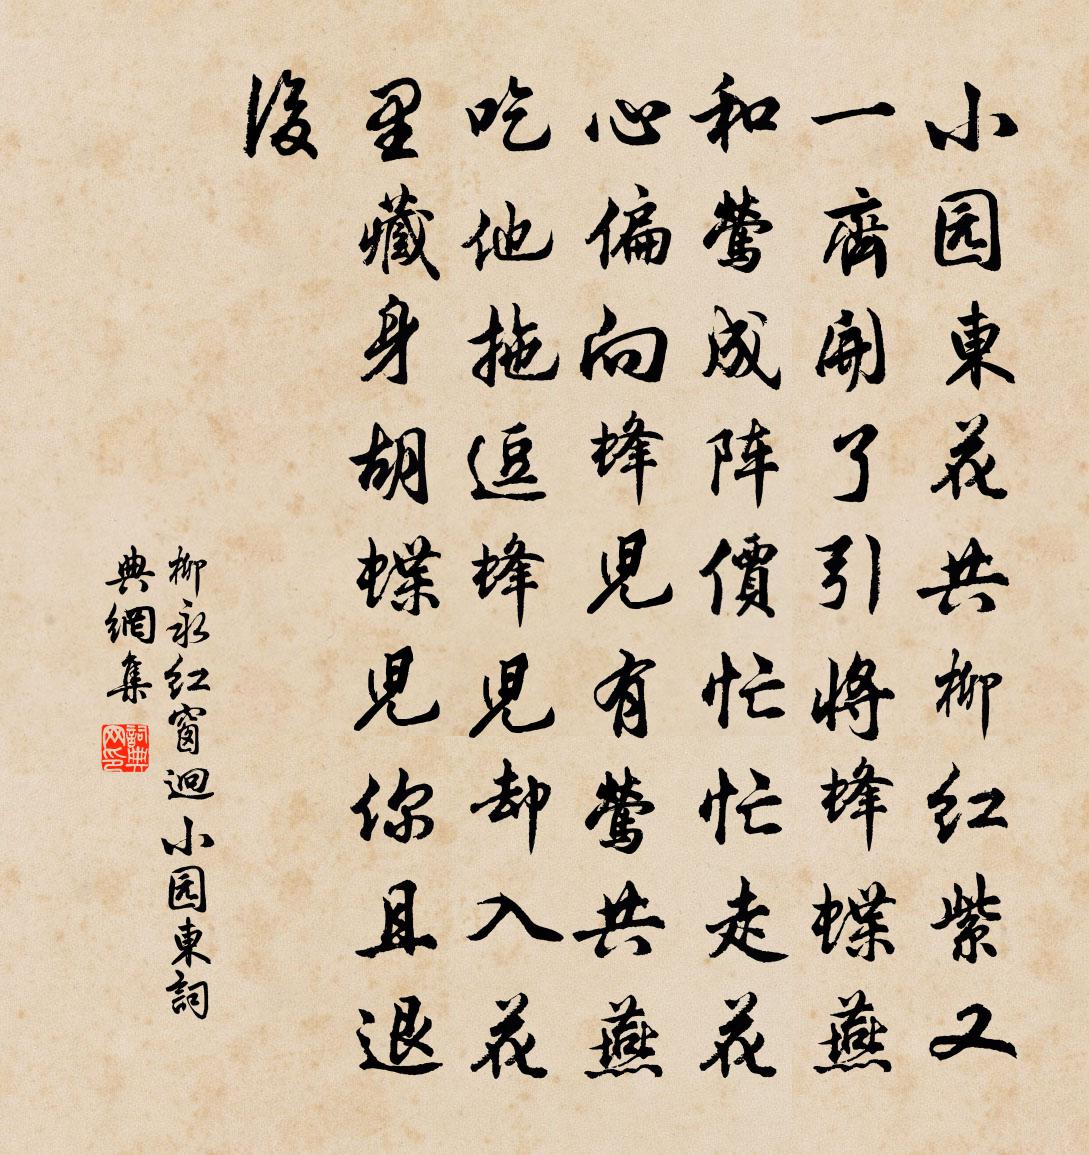 小园東花共柳红紫又
一齊開了引将蜂蝶燕
和莺成阵價忙忙走花
心偏向蜂児有莺共燕
吃他拖逗蜂児却入花
里藏身胡蝶児你且退
後
柳永红窗迥小园東詞
典網集
詞典网印